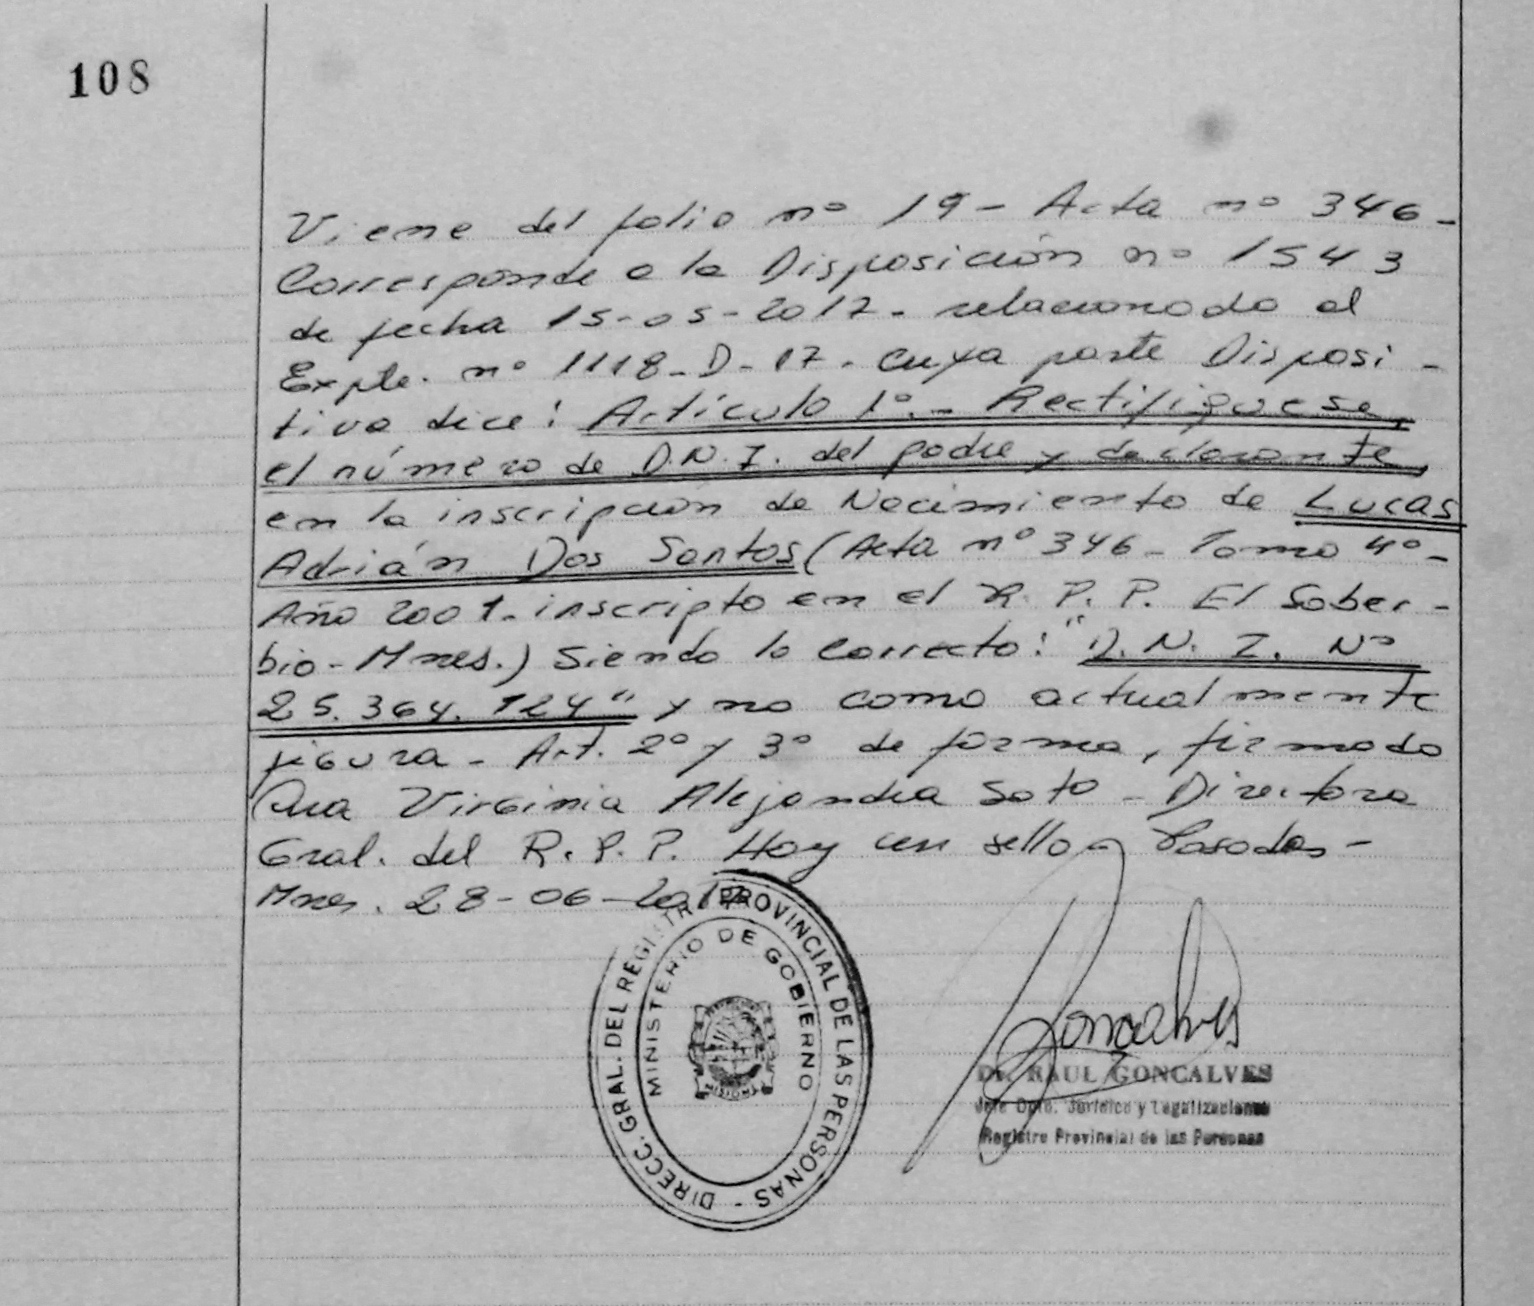 108
Viene del folio nº 19 - Acta nº 346 -
Corresponde a la Disposición nº 1543
de fecha 15-05-2017 - relacionado al
Expte. nº 1118-D-17 - cuya parte Disposi-
tiva dice: Artículo 1º.- Rectifíquese,
el número de D.N.I. del padre y declarante,
en la inscripción de Nacimiento de Lucas
Adrián Dos Santos (Acta nº 346 - Tomo 4º -
Año 2001 - inscripto en el R. P. P. El Sober-
bio - Mnes.) Siendo lo correcto: "D. N. I. Nº
25.364.124" y no como actualmente
figura - Art. 2º y 3º de forma, firmado
Virginia Alejandra Soto - Directora
Gral. del R. P. P. Hay un sello Posadas -
Mnes. 28-06-2017
DIRECC. GRAL. DEL REGISTRO PROVINCIAL DE LAS PERSONAS -
MINISTERIO DE GOBIERNO
MISIONES
Goncalves
Dr. RAUL GONCALVES
Jefe Dpto. Jurídico y Legalizaciones
Registro Provincial de las Personas